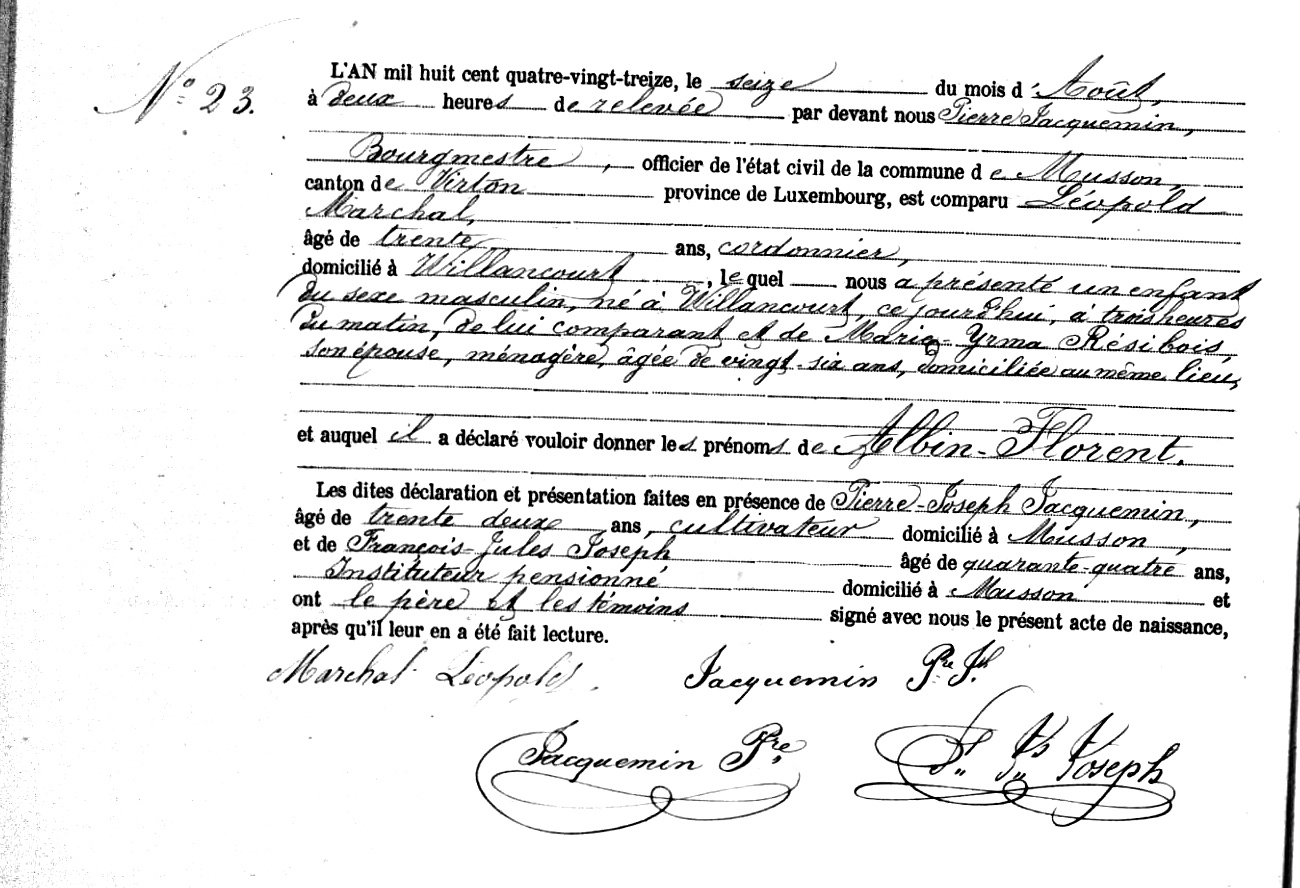 N° 23.
L'AN mil huit cent quatre-vingt-treize, le seize du mois d'Août,
à deux heures de relevée par devant nous Pierre Jacquemin,
Bourgmestre, officier de l'état civil de la commune de Musson,
canton de Virton province de Luxembourg, est comparu Léopold
Marchal,
âgé de trente ans, cordonnier,
domicilié à Willancourt, lequel nous a présenté un enfant
du sexe masculin, né à Willancourt, ce jourd'hui, à trois heures
du matin, de lui comparant et de Marie-Yrma Résibois,
son épouse, ménagère, âgée de vingt-six ans, domiciliée au même lieu,
et auquel il a déclaré vouloir donner les prénoms de Albin-Florent.
Les dites déclaration et présentation faites en présence de Pierre-Joseph Jacquemin,
âgé de trente deux ans, cultivateur domicilié à Musson,
et de François-Jules Joseph âgé de quarante-quatre ans,
Instituteur pensionné domicilié à Musson et
ont le père et les témoins signé avec nous le présent acte de naissance,
après qu'il leur en a été fait lecture.
Marchal Léopold. Jacquemin Pre Jh.
Jacquemin Pre. Joseph